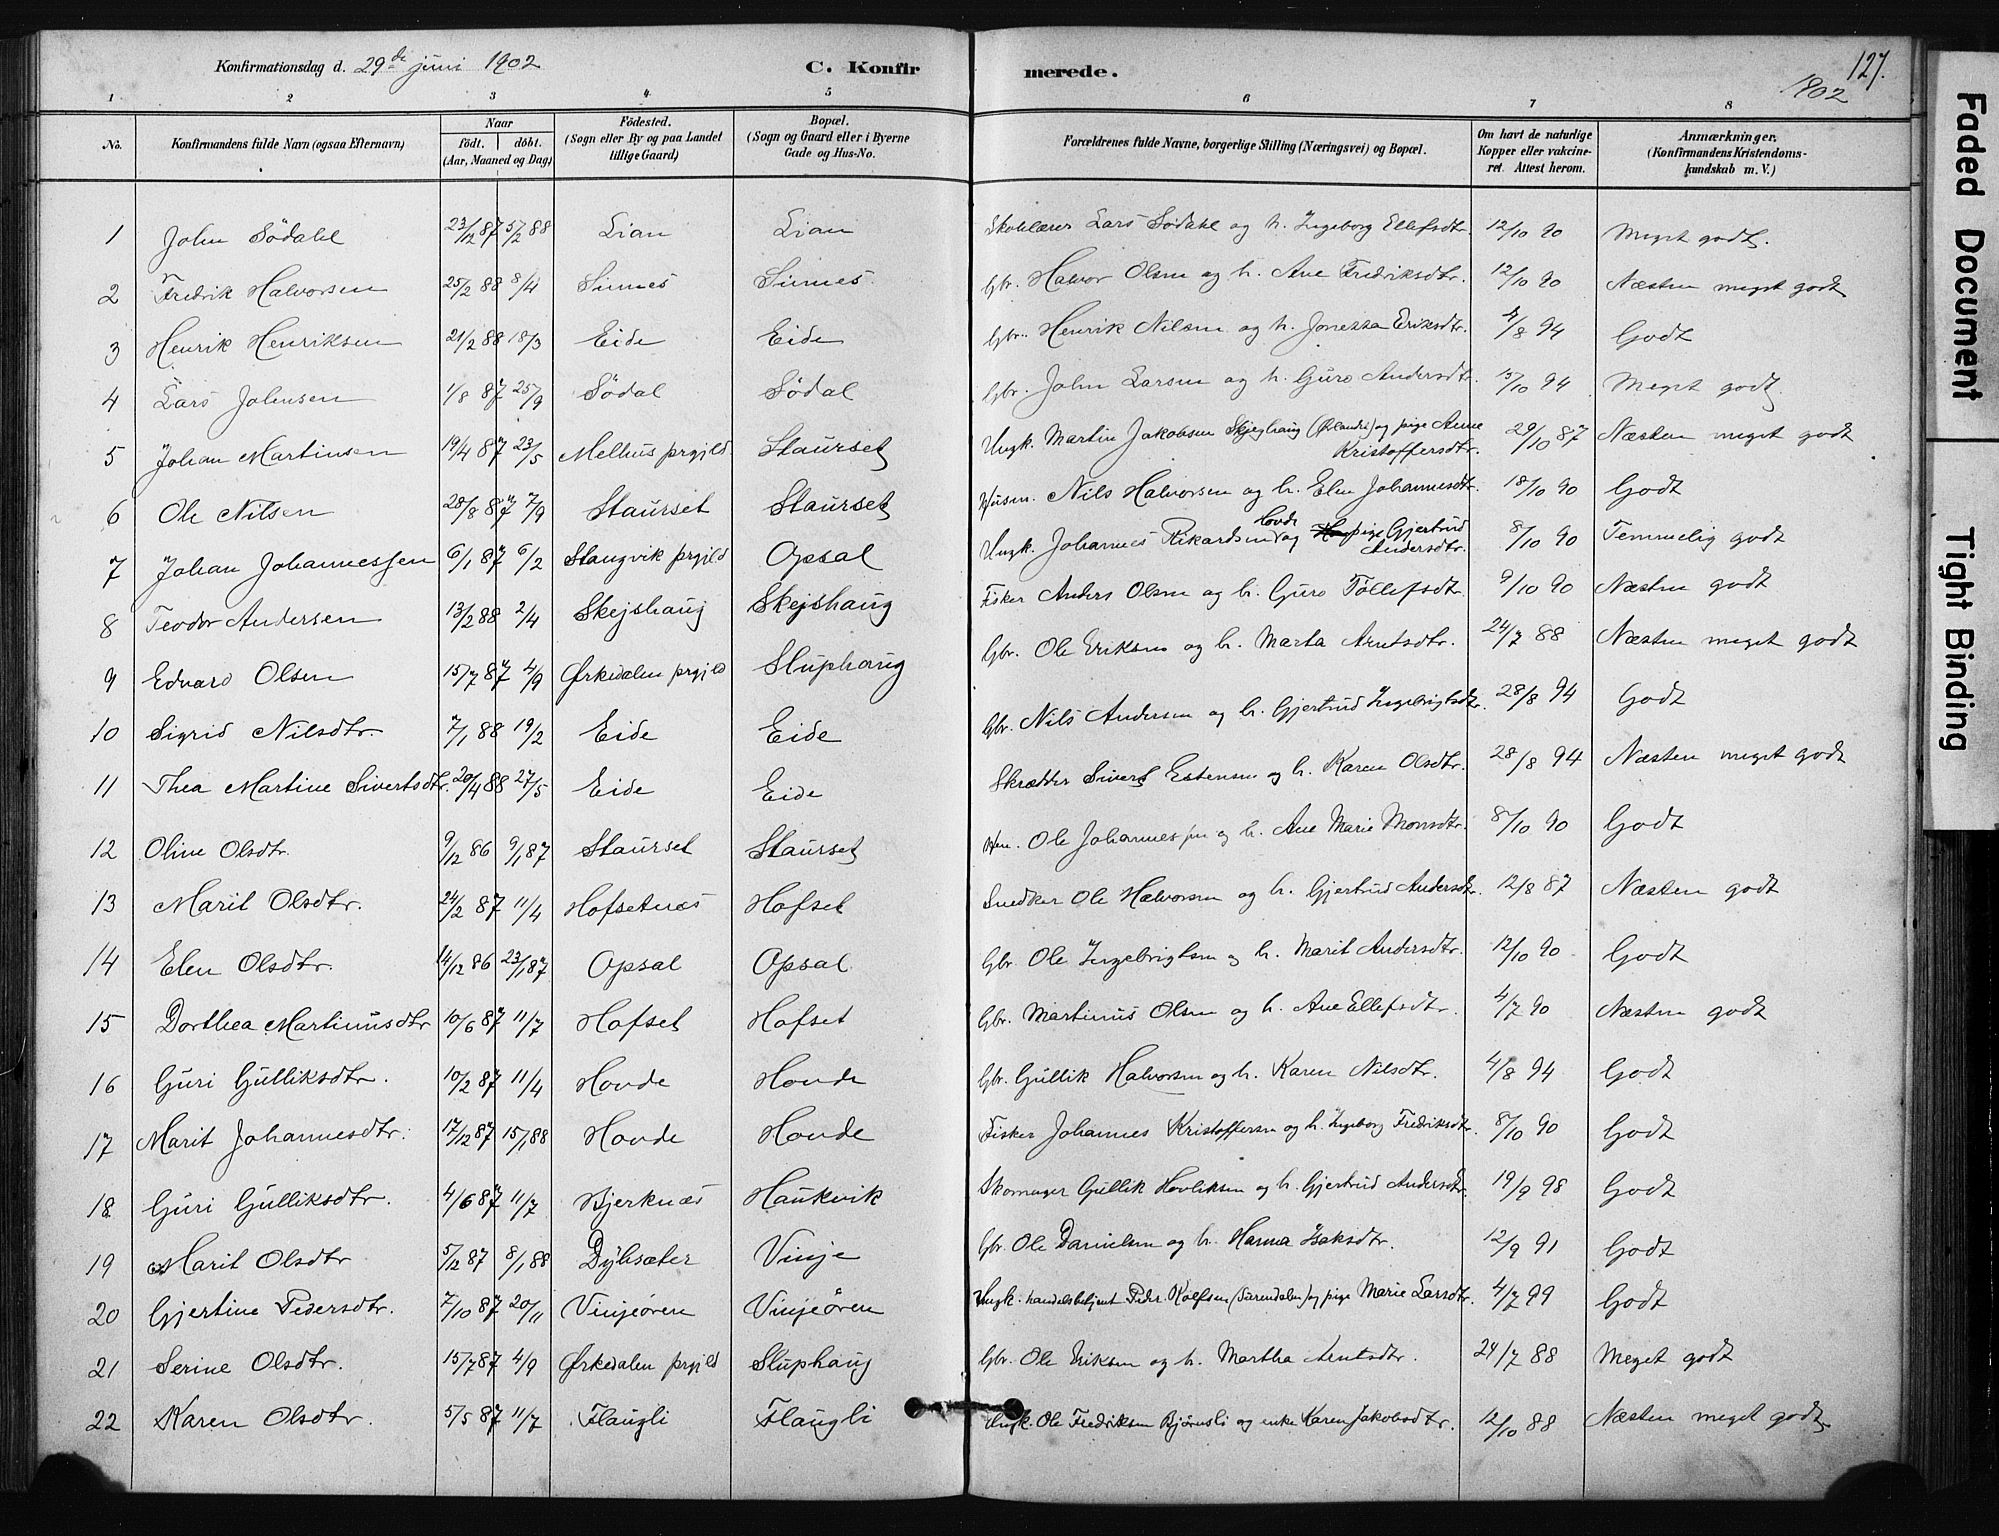 Konfirmationsdag d. 29de juni 1902 C. Konfirmerede. 127.
1902
1 2 3 4 5 6 7 8
No. Konfirmandens fulde Navn (ogsaa Efternavn) Naar födt. döbt. (Aar, Maaned og Dag) Födested. (Sogn eller By og paa Landet tillige Gaard) Bopæl. (Sogn og Gaard eller i Byerne Gade og Hus-No. Forældrenes fulde Navne, borgerlige Stilling (Næringsvei) og Bopæl. Om havt de naturlige Kopper eller vakcineret. Attest herom. Anmærkninger. (Konfirmandens Kristendomskundskab m. V.)
1 John Södahl 23/12 87 5/2 88 Lian Lian Skolelærer Lars Södahl og h. Ingeborg Ellefsdtr. 12/10 90 Meget godt.
2 Fredrik Halvorsen 25/2 88 8/4 Sinnes Sinnes Gbr. Halvor Olsen og h. Ane Fredriksdtr. 12/10 90 Næsten meget godt
3 Henrik Henriksen 21/2 88 18/3 Eide Eide Gbr. Henrik Nilsen og h. Jonetta Eriksdtr. 4/8 94 Godt
4 Lars Johnsen 1/8 87 25/9 Södal Södal Gbr. John Larsen og h. Guro Andersdtr. 15/10 94 Meget godt.
5 Johan Martinsen 19/4 87 23/5 Melhus prgjld. Staurset Ungk. Martin Jakobsen Skjeghaug (Ørlandet) og pige Anne Kristoffersdtr. 29/10 87 Næsten meget godt
6 Ole Nilsen 28/8 87 7/9 Staurset Staurset Husm. Nils Halvorsen og h. Elen Johannesdtr. 18/10 90 Godt
7 Johan Johannessen 6/1 87 6/2 Stangvik prgjld Opsal Ungk. Johannes Rikardsen Hovde og pige Gjertrud Andersdtr. 8/10 90 Temmelig godt
8 Teodor Andersen 13/2 88 2/4 Skejshaug Skejshaug Fisker Anders Olsen og h. Guro Töllefsdtr. 9/10 90 Næsten godt
9 Edvard Olsen 15/7 87 4/9 Ørkedalen prgjld Sluphaug Gbr. Ole Eriksen og h. Marta Arntsdtr. 24/7 88 Næsten meget godt
10 Sigrid Nilsdtr. 7/1 88 19/2 Eide Eide Gbr. Nils Andersen og h. Gjertrud Ingebrigtsdtr. 28/8 94 Godt
11 Thea Martine Sivertsdtr. 20/4 88 27/5 Eide Eide Skrædder Sivert Estensen og h. Karen Olsdtr. 28/8 94 Næsten meget godt
12 Oline Olsdtr. 9/12 86 9/1 87 Staurset Staurset Ole Johannessen og h. Ane Marie Monsdtr. 8/10 90 Godt
13 Marit Olsdtr. 24/2 87 11/4 Hofsetnæs Hofset Snedker Ole Halvorsen og h. Gjertrud Andersdtr. 12/8 87 Næsten godt
14 Elen Olsdtr. 14/12 86 23/1 87 Opsal Opsal Gbr. Ole Ingebrigtsen og h. Marit Andersdtr. 12/10 90 Godt
15 Dorthea Martinusdtr 10/6 87 11/7 Hofset Hofset Gbr. Martinus Olsen og h. Ane Ellefsdtr. 4/7 90 Næsten godt
16 Guri Gulliksdtr. 10/2 87 11/4 Hovde Hovde Gbr. Gullik Halvorsen og h. Karen Nilsdtr. 4/8 94 Godt
17 Marit Johannesdtr. 17/12 87 15/1 88 Hovde Hovde Fisker Johannes Kristoffersen og h. Ingeborg Fredriksdtr. 8/10 90 Godt
18 Guri Gulliksdtr. 4/6 87 11/7 Bjerknæs Haukvik Skomager Gullik Hovliksen og h. Gjertrud Andersdtr. 19/9 98 Godt
19 Marit Olsdtr 5/12 87 8/1 88 Dýlsæter Vinje Gbr. Ole Danielsen og h. Hanna Isaksdtr. 12/9 91 Godt
20 Gjertine Pedersdtr. 7/10 87 20/11 Vinjeören Vinjeören Ungk. handelsbetjent Peder Rolfsen (Surendalen) og pige Marie Larsdtr. 4/7 99 Godt
21 Serine Olsdtr. 15/7 87 4/9 Ørkedalen prgjld Sluphaug Gbr. Ole Eriksen og h. Martha Arntsdtr. 24/7 88 Meget godt
22 Karen Olsdtr. 5/5 87 11/7 Flaugli Flaugli Ungk. Ole Fredriksen Bjørnsli og enke Karen Jakobsdtr. 12/10 88 Næsten meget godt
Faded Document
Tight Binding